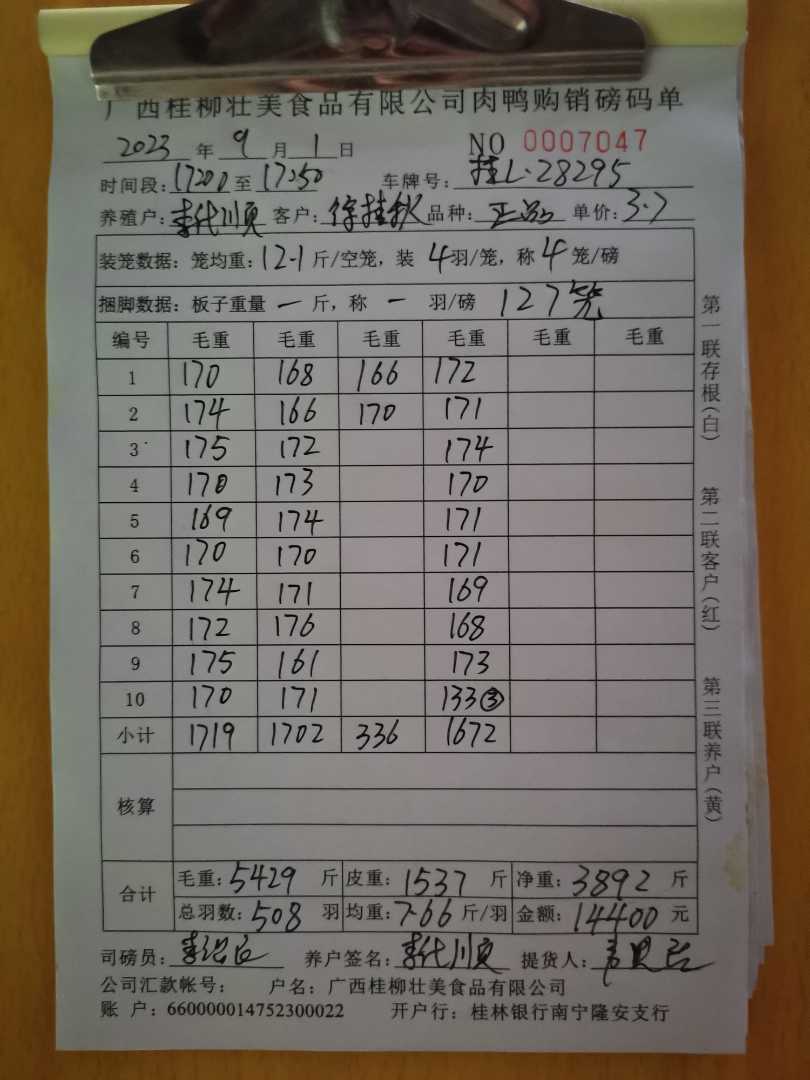 广西桂柳壮美食品有限公司肉鸭购销磅码单
2023 年 9 月 1 日 NO 0007047
时间段: 17200 至 17250 车牌号: 桂L·28295
养殖户: 李代川页 客户: 徐桂秋 品种: 正品 单价: 3.7
装笼数据: 笼均重: 12.1 斤/空笼, 装 4 羽/笼, 称 4 笼/磅
捆脚数据: 板子重量 一 斤, 称 一 羽/磅 127笼
编号 毛重 毛重 毛重 毛重 毛重 毛重
1 170 168 166 172
2 174 166 170 171
3 175 172 174
4 170 173 170
5 169 174 171
6 170 170 171
7 174 171 169
8 172 176 168
9 175 161 173
10 170 171 133③
小计 1719 1702 336 1672
核算
合计 毛重: 5429 斤 皮重: 1537 斤 净重: 3892 斤
总羽数: 508 羽 均重: 7.66 斤/羽 金额: 14400 元
司磅员: 养户签名: 李代川页 提货人:
公司汇款帐号: 户名: 广西桂柳壮美食品有限公司
账 户: 660000014752300022 开户行: 桂林银行南宁隆安支行
第一联存根(白)
第二联客户(红)
第三联养户(黄)